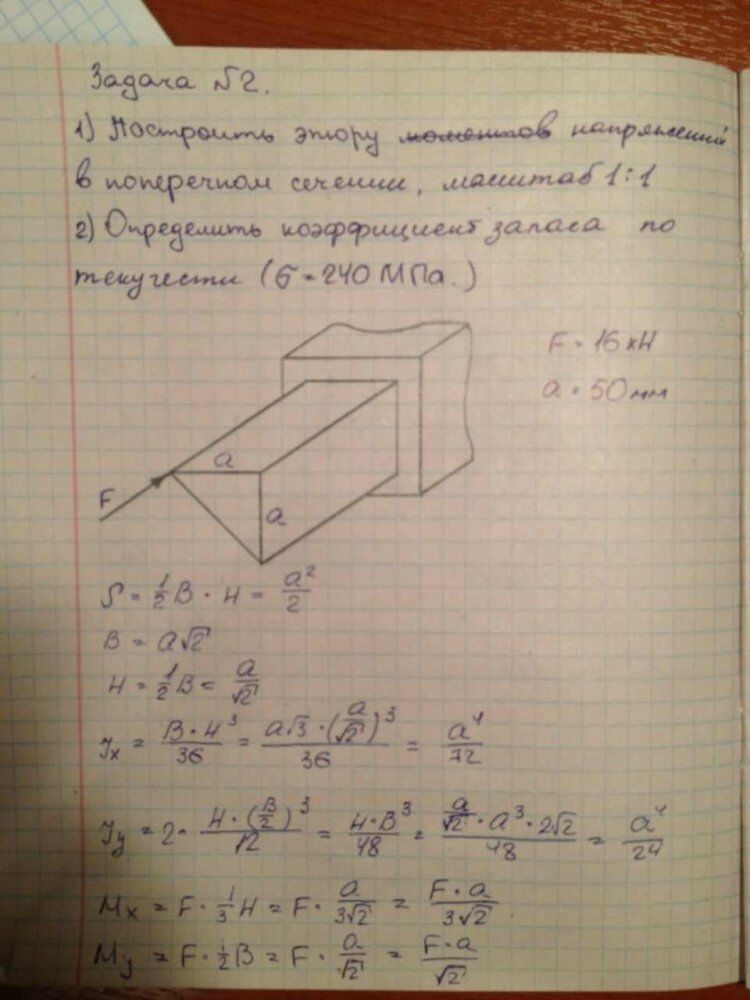 Задача №2.
1) Построить эпюру моментов напряжений
в поперечном сечении, масштаб 1:1
2) Определить коэффициент запаса по
текучести (σ = 240 МПа.)
F = 16 кН
a = 50 мм
a
F
a
S = 1/2 B · H = a²/2
B = a√2
H = 1/2 B = a/√2
Jx = B · H³/36 = a√3 · (a/√2)³/36 = a⁴/72
Jy = 2 · H · (B/2)³/12 = H · B³/48 = a/√2 · a³ · 2√2/48 = a⁴/24
Mx = F · 1/3 H = F · a/3√2 = F · a/3√2
My = F · 1/2 B = F · a/√2 = F · a/√2